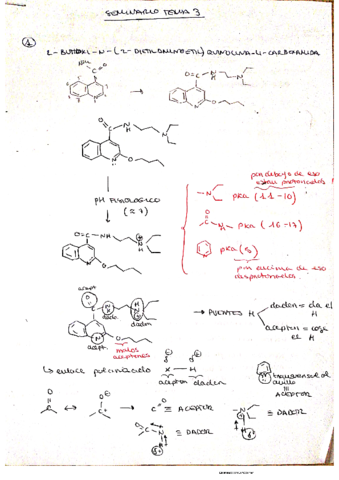 SEMINARIO TEMA 3
①
2-BUTOXI-N-(2-DIETILAMINOETIL)QUINOLINA-4-CARBOXAMIDA
por debajo de eso
están protonados
pKa (11-10)
pH FISIOLÓGICO
(≈7)
pKa (16-17)
pKa (5)
por encima de eso
desprotonados.
acept.
dador
dador
acept.
malos
aceptores
→ PUENTES H
dador = da el H
aceptor = coge el H
↳ enlace polarizado
X — H
aceptor dador
transversal al
anillo
ACEPTOR
≡ ACEPTOR
≡ DADOR
≡ DADOR